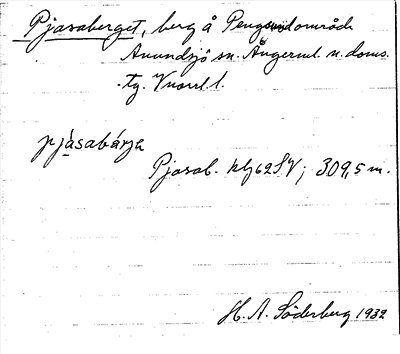 Pjasaberget, berg å Pengsund område
Anundsjö sn. Ångerml. n. doms.
tg. Vnorrl. l.
pjàsabárja
Pjasab. klj 62 SV; 309,5 m.
H. A. Söderberg 1932